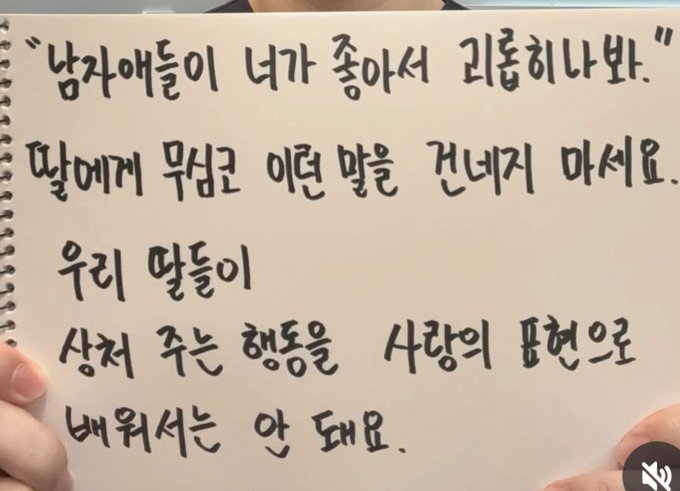 "남자애들이 너가 좋아서 괴롭히나봐."
딸에게 무심코 이런 말을 건네지 마세요.
우리 딸들이
상처 주는 행동을 사랑의 표현으로
배워서는 안 돼요.